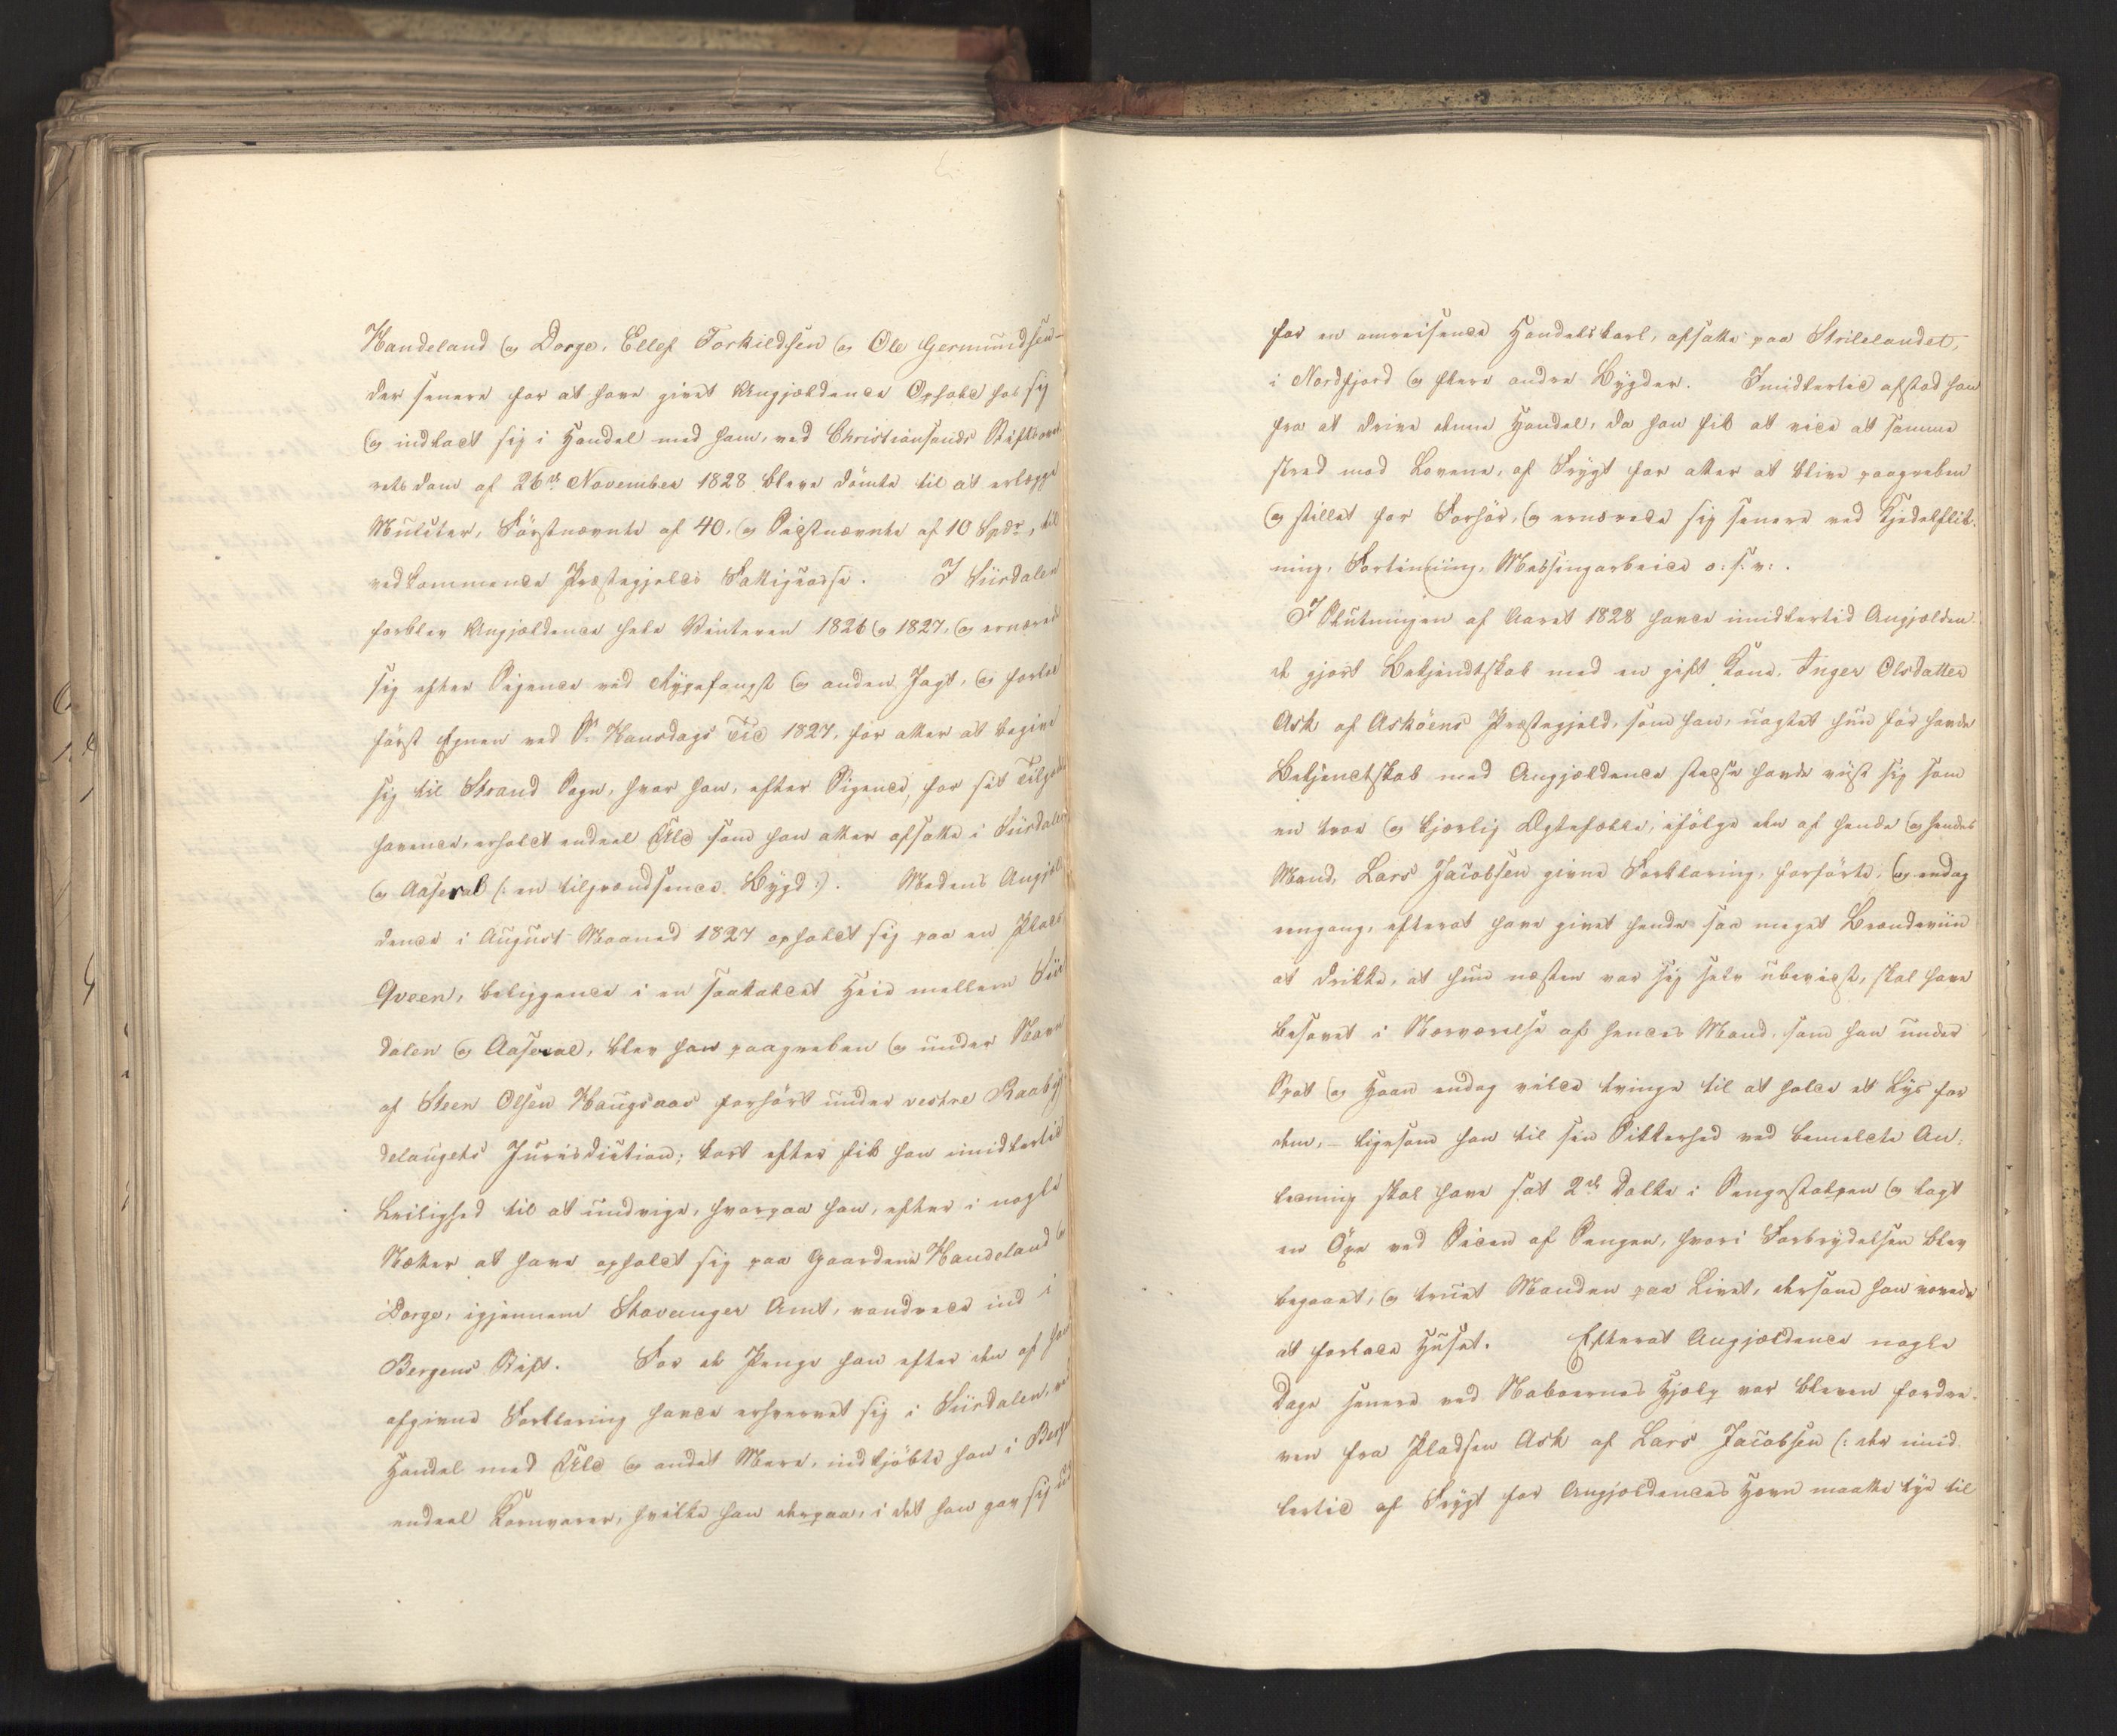 Handeland og Dorge, Ellef Torkildsen og Ole Germundsen
der senere for at have givet Angjældende Ophold hos sig
og indladt sig i Handel med ham, ved Christiansands Stiftsover
retsdom af 26de November 1828 bleve dömte til at erlægge
Mulcter, Förstnævnte af 40, og Sidstnævnte af 10 Spdr, til
vedkommende Præstegjelds Fattigcasse. I Siirdalen
forblev Angjældende hele Vinteren 1826 og 1827, og ernærede
sig efter Sigende ved Rypefangst og anden Jagt, og forlod
först Egnen ved St. Hansdags Tid 1827, for atter at begive
sig til Strand Sogn, hvor han, efter Sigende, for sit Tilgode
havende, erholdt endeel Uld som han atter afsatte i Siirdalen
og Aaseral (: en tilgrændsende Bygd :). Medens Angjæl
dende i August Maaned 1827 opholdt sig paa en Plads
Qveen, beliggende i en saakaldet Heie mellem Siir
dalen og Aaseral, blev han paagreben og under Navn
af Steen Olsen Haugsaas forhört under vestre Raaby
delaugets Jurisdiction; kort efter fik han imidlertid
Leilighed til at undvige, hvorpaa han, efter i nogle
Nætter at have opholdt sig paa Gaardene Handeland og
Dorge, igjennem Stavanger Amt, vandrede ind i
Bergens Stift. For de Penge han efter den af ham
afgivne Forklaring havde erhvervet sig i Siirdalen, ved
Handel med Uld og andet Mere, indkjöbte han i Bergen
endeel Kornvarer, hvilke han derpaa, i det han gav sig ud
for en omreisende Handelskarl, afsatte paa Strilelandet,
i Nordfjord og flere andre Bygder. Imidlertid afstod han
fra at drive denne Handel, da han fik at vide at samme
stred mod Lovene, af Frygt for atter at blive paagreben
og stillet for Forhör, og ernærede sig senere ved Kjedelflik-
ning, Fortinning, Messingarbeide o: s: v: .
I Slutningen af Aaret 1828 havde imidlertid Angjælden-
de gjort Bekjendtskab med en gift Kone, Inger Olsdatter
Ask af Asköens Præstegjeld, som han, uagtet hun för hendes
Bekjendtskab med Angjældende stedse havde viist sig som
en troe og kjærlig Ægtefælle, ifölge den af hende og hendes
Mand, Lars Jacobsen givne Forklaring, forförte, og endog
eengang, efterat have givet hende saa meget Brændeviin
at drikke, at hun næsten var sig selv ubevidst, skal have
besovet i Nærværelse af hendes Mand, som han under
Spot og Haan endog vilde tvinge til at holde et Lys for
dem, - ligesom han til sin Sikkerhed ved bemeldte An-
ledning skal have sat 2de Dolke i Sengestolpen og lagt
en Öxe ved Siden af Sengen, hvori Forbrydelsen blev
begaaet, og truet Manden paa Livet, dersom han vovede
at forlade Huset. Efterat Angjældende nogle
Dage senere ved Naboernes Hjelp var bleven fordre-
ven fra Pladsen Ask af Lars Jacobsen (: der imid
lertid af Frygt for Angjældendes Hævn maatte tye til